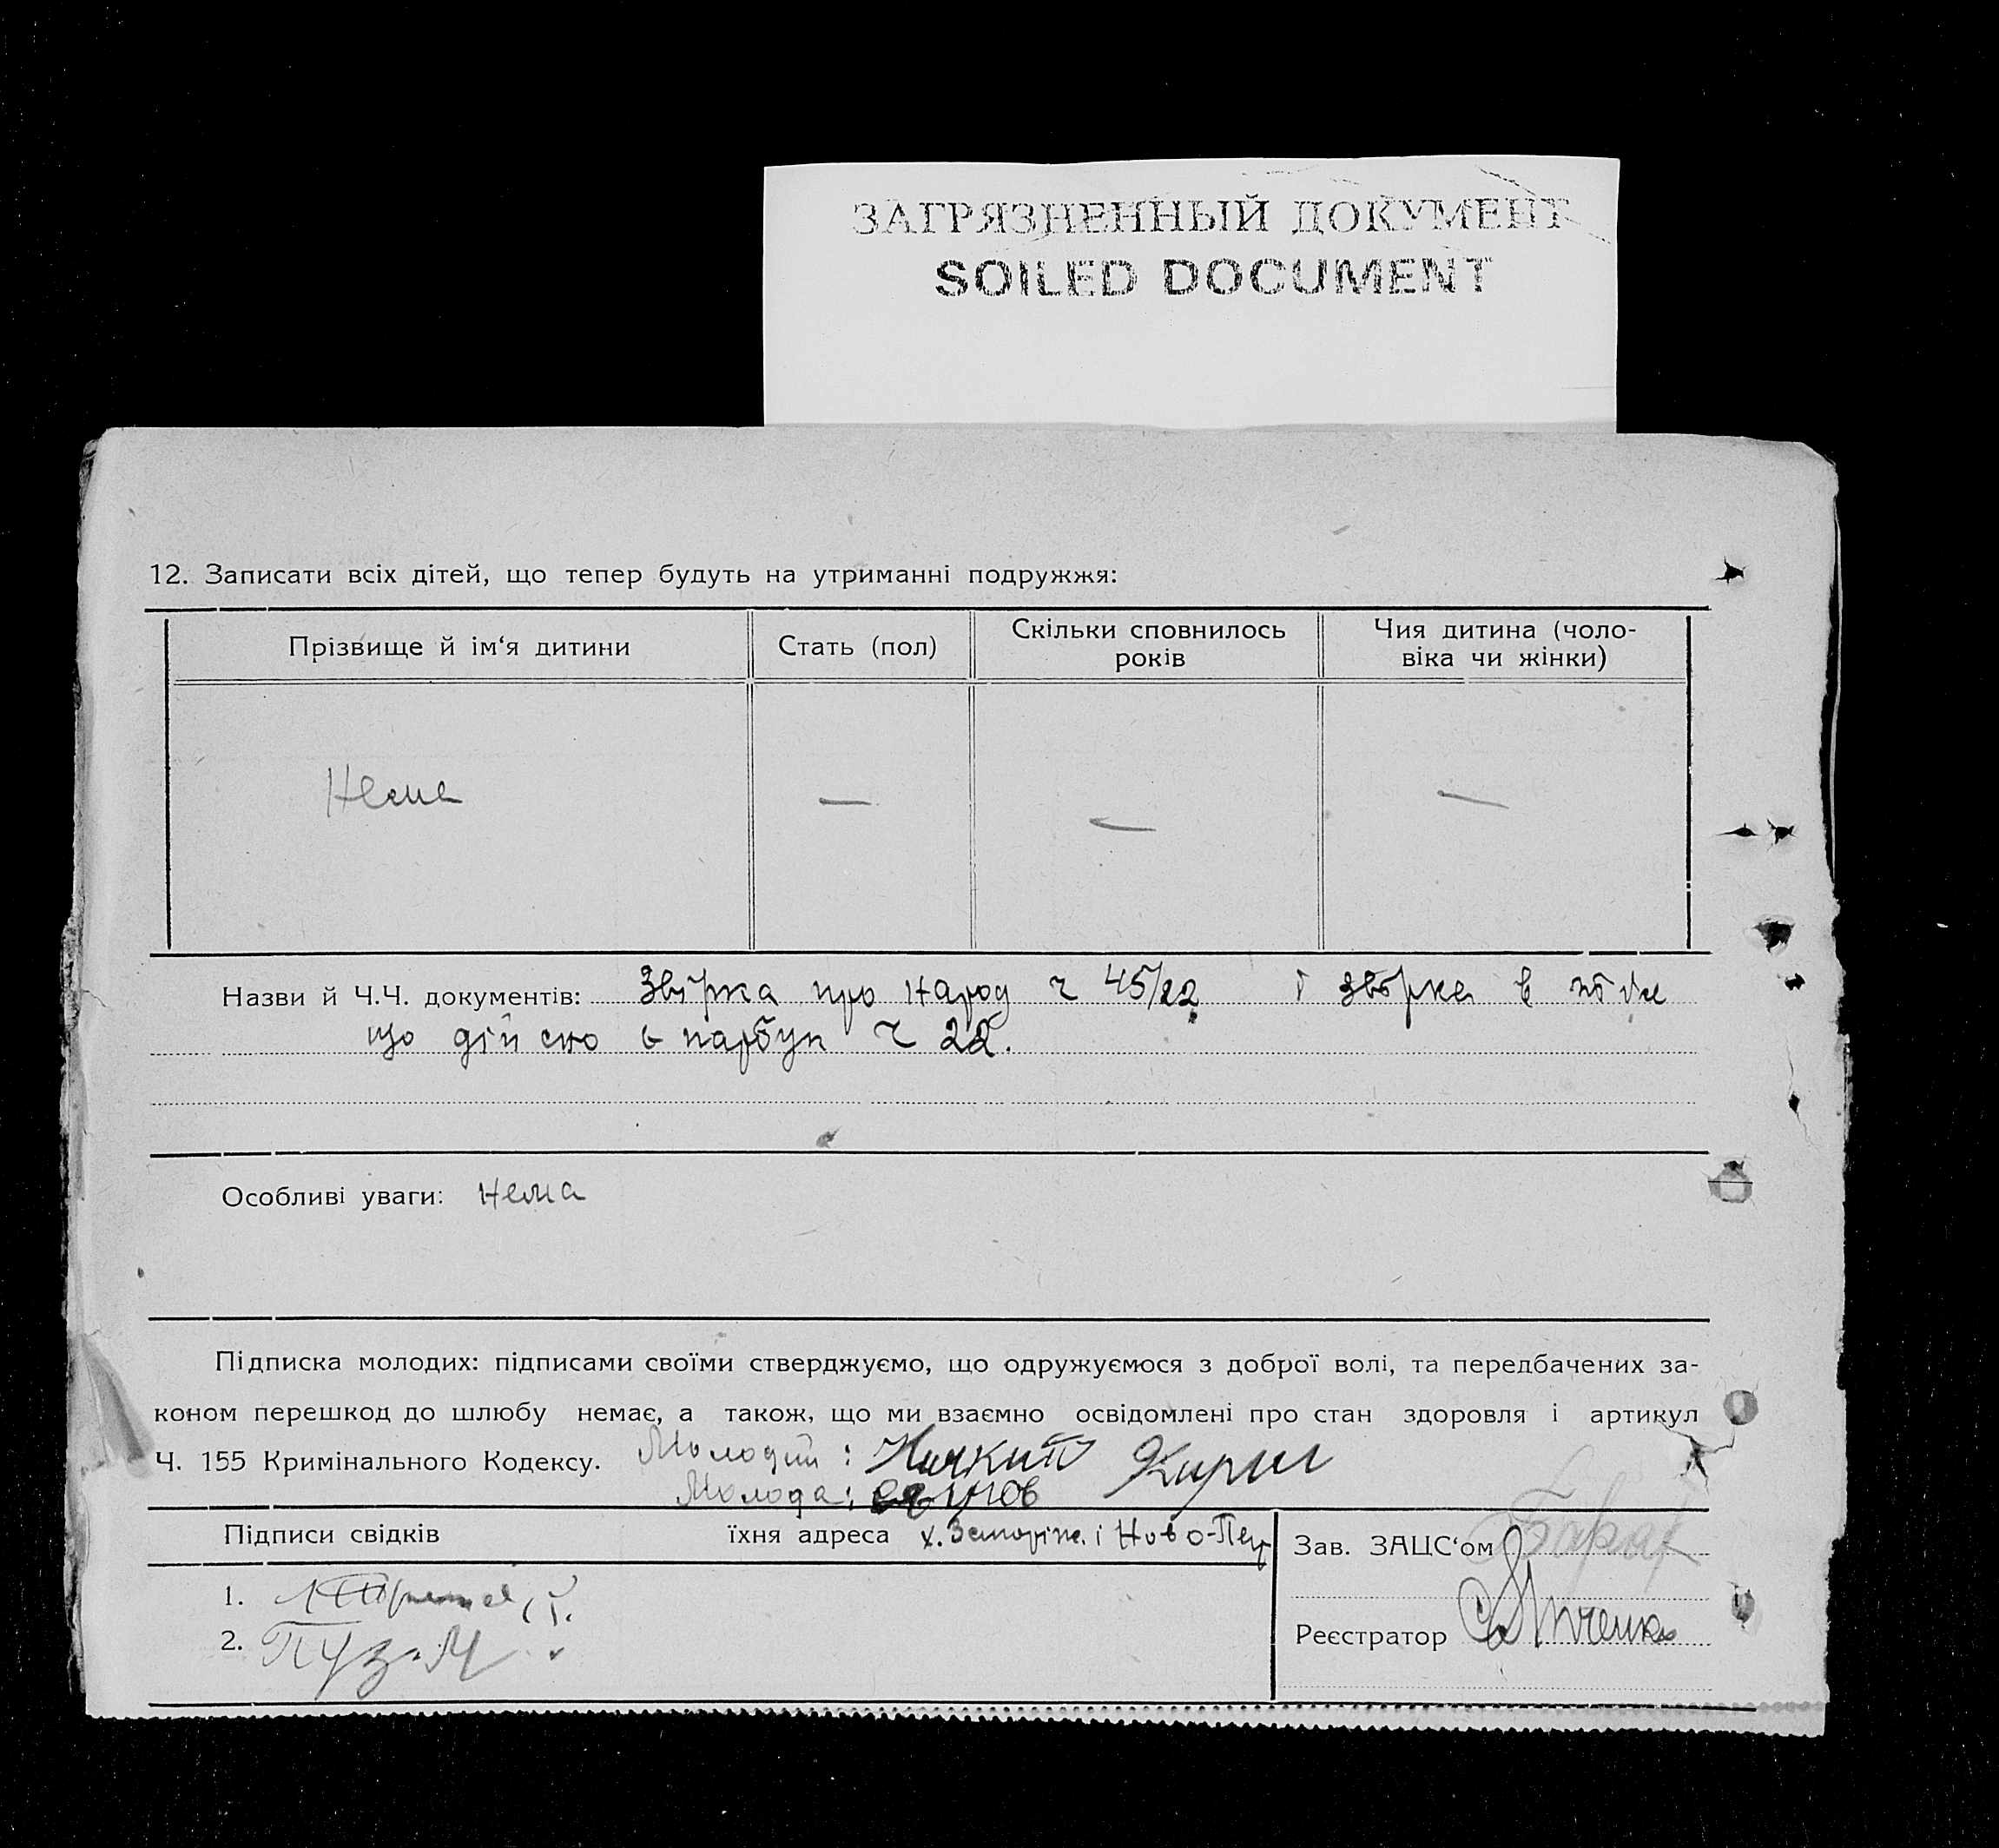 ЗАГРЯЗНЕННЫЙ ДОКУМЕНТ
SOILED DOCUMENT
12. Записати всіх дітей, що тепер будуть на утриманні подружжя:
Прізвище й ім‘я дитини
Стать (пол)
Скільки сповнилось
років
Чия дитина (чоло-
віка чи жінки)
Нема — — —
Назви й Ч.Ч. документів: про народ ч 45/22 і в
що ч 22.
Особливі уваги: нема
Підписка молодих: підписами своїми стверджуємо, що одружуємося з доброї волі, та передбачених за-
коном перешкод до шлюбу немає, а також, що ми взаємно освідомлені про стан здоровля і артикул
Ч. 155 Кримінального Кодексу. Молодий:
Молода:
Підписи свідків їхня адреса х. і Ново-
Зав. ЗАЦС‘ом
1.
2.
Реєстратор